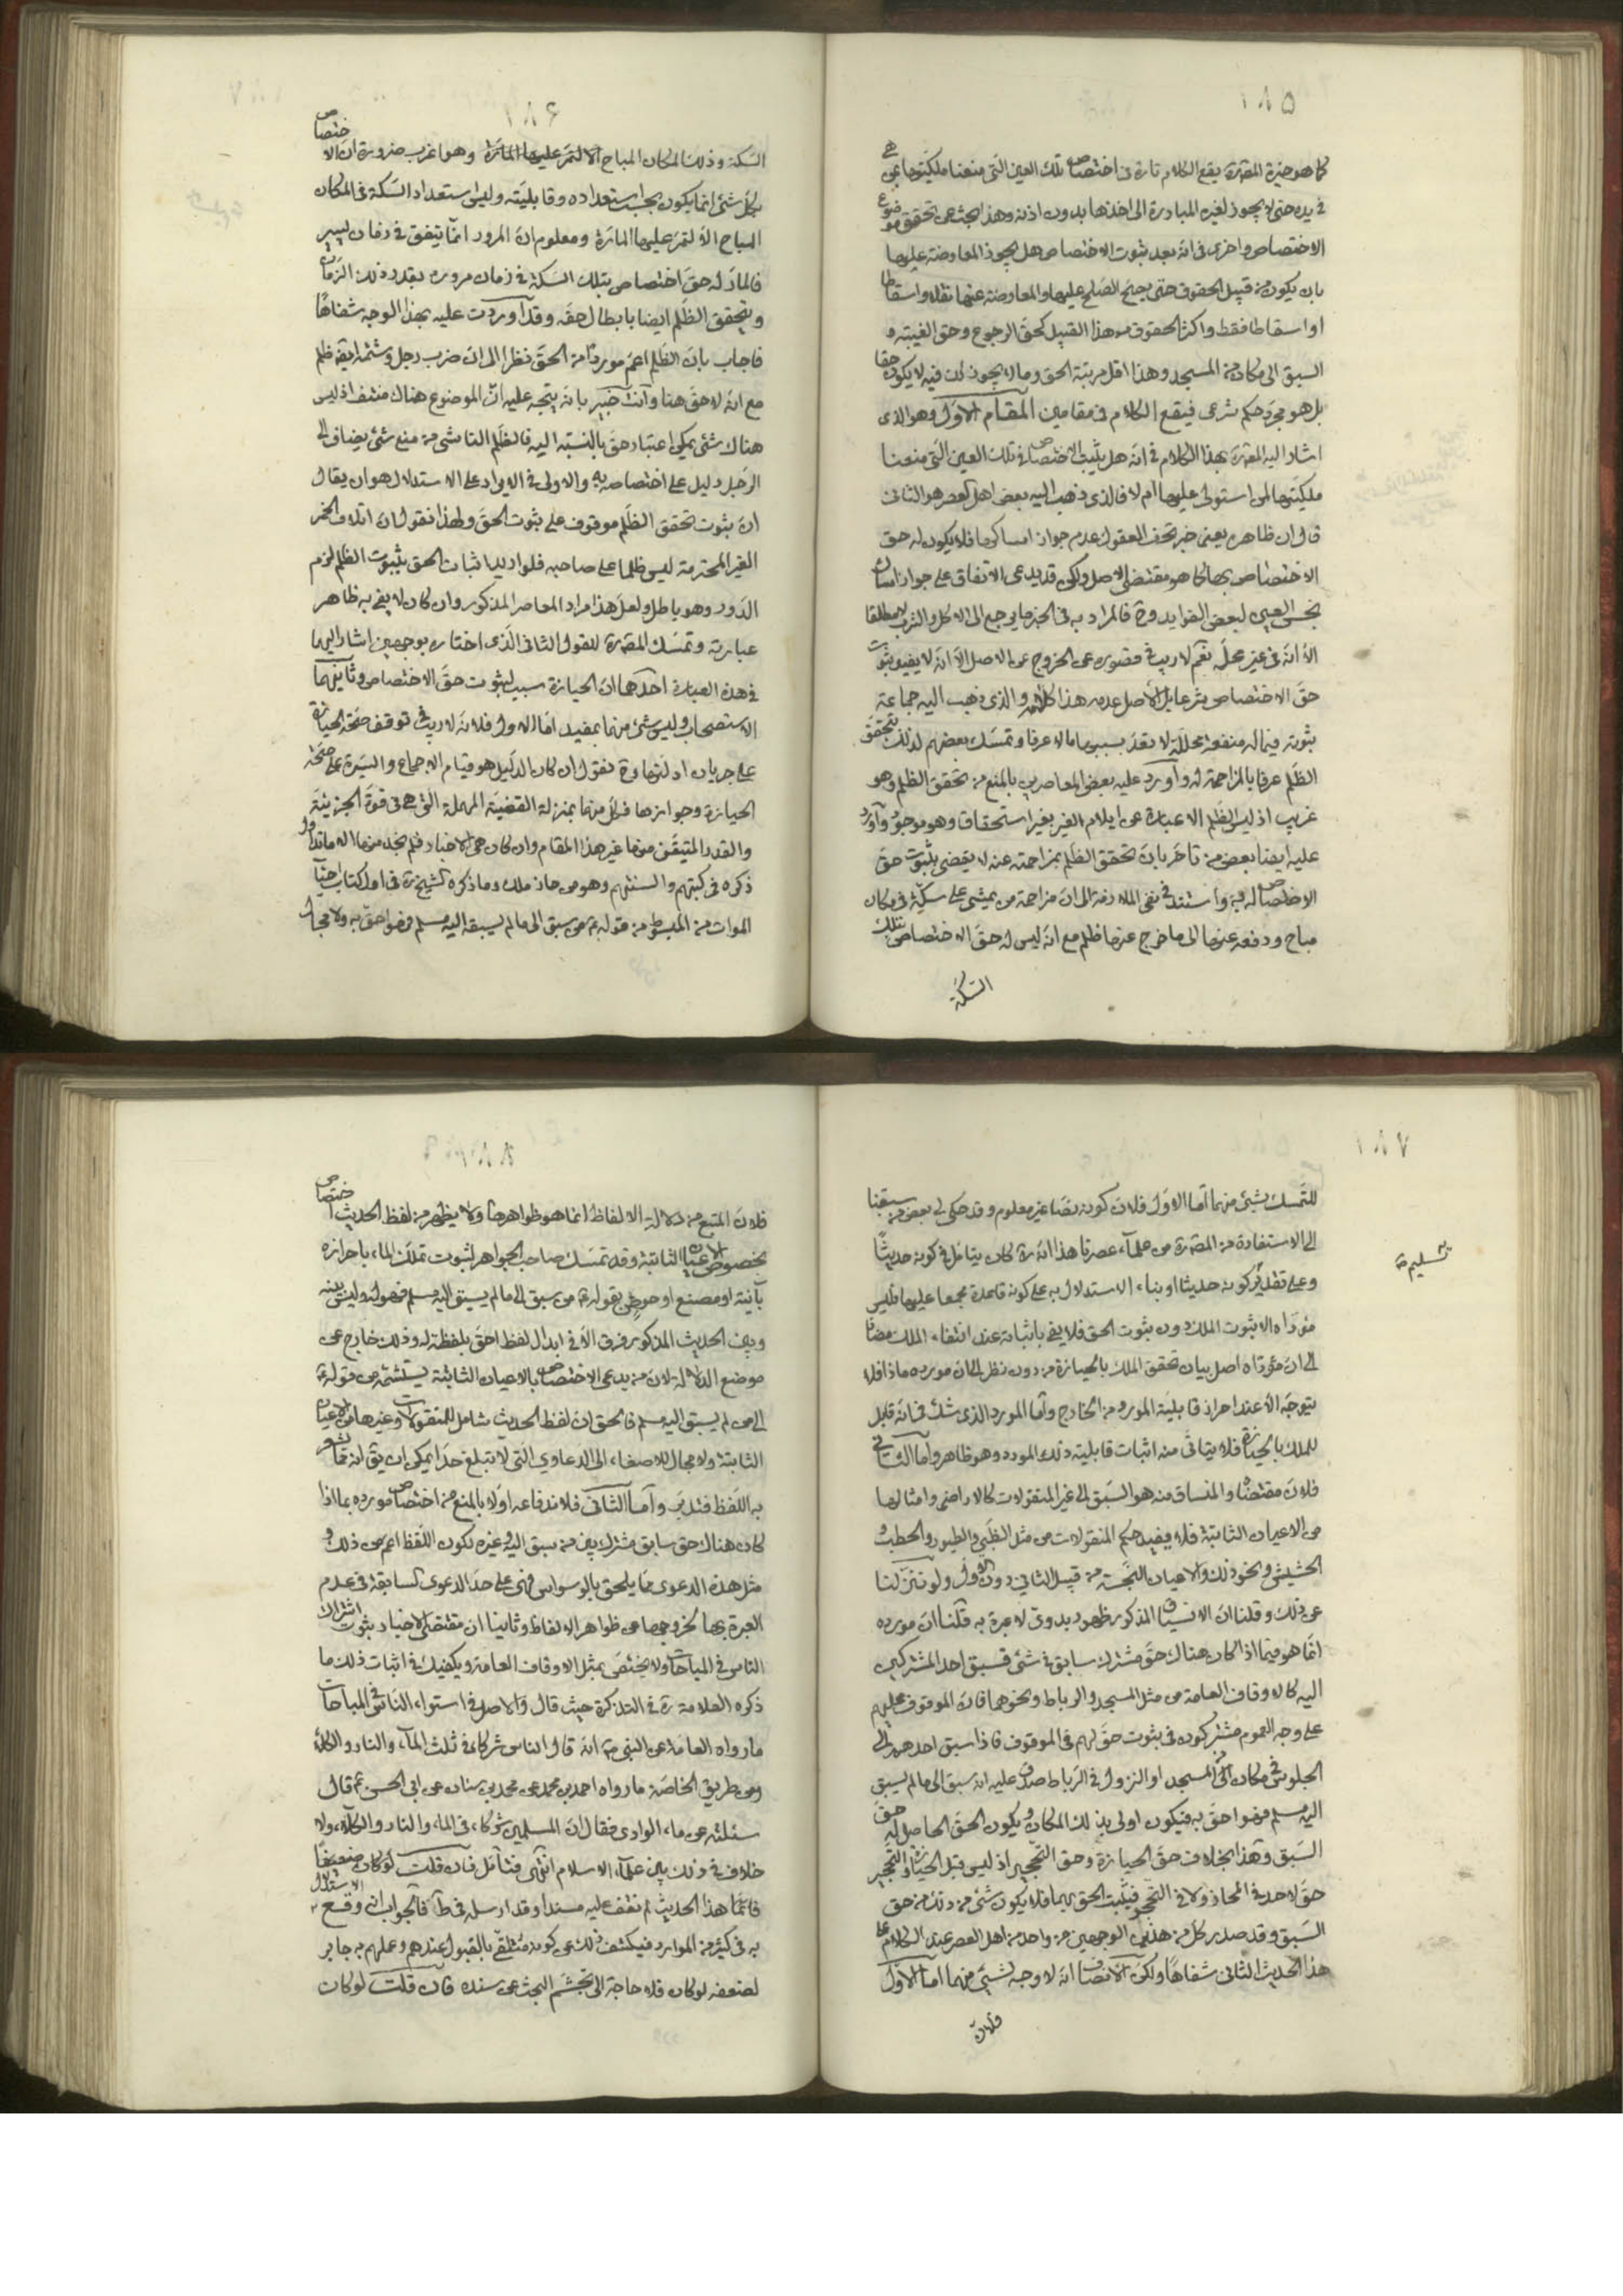 ١٨٥
كما هو خيرة المصنّف ره يقع الكلام تارة فى اختصاص تلك العين التى منعنا ملكيّتها بمن هى
فى يده حتى لا يجوز لغيره المبادرة الى اخذها بدون اذنه وهذا بحث عن تحقق موضوع
الاختصاص واخرى فى انه بعد ثبوت الاختصاص هل يجوز المعاوضة عليها
بان يكون من قبيل الحقوق حتى يصحّ الصّلح عليها والمعاوضة عنها نقلا واسقاطا
او اسقاطا فقط واكثر الحقوق من هذا القبيل كحقّ الرجوع وحق الغيبة و
السبق الى مكان من المسجد وهذا اقل مرتبة الحق وما لا يجوز ذلك فيه لا يكون حقا
بل هو مجرّد حكم شرعى فيقع الكلام فى مقامين المقام الاوّل وهو الذى
اشار اليه المصنّف ره بهذا الكلام فى انه هل يثبت الاختصاص فى تلك العين التى منعنا
ملكيّتها لمن استولى عليها ام لا فالذى ذهب اليه بعض اهل العصر هو الثانى
قال ان ظاهره يعنى خبر تحف العقول عدم جواز امساكها فلا يكون له حق
الاختصاص بها كما هو مقتضى الاصل ولكن قد يدعى الاتفاق على جواز امساك
نجس العين لبعض الفوايد وح فالمراد به فى الخبر ما يرجع الى الاكل والشرب لا مطلقا
الّا انّه فى غير محلّه نعم لا ريب فى قصوره عن الخروج عن الاصل الّا انّه لا يفيد ثبوت
حقّ الاختصاص شرعا بل الاصل عدمه هذا كلامه والذى ذهب اليه جماعة
ثبوته فيما له منفعة محلّلة لا تعدّ بسببها مالا عرفا وتمسّك بعضهم لذلك بتحقق
الظّلم عرفا بالمزاحمة له واورد عليه بعض المعاصرين بالمنع من تحقق الظلم وهو
غريب اذ ليس الظّلم الا عبارة عن ايلام الغير بغير استحقاق وهو موجود واورد
عليه ايضا بعض من تأخر بان تحقق الظّلم بمزاحمته عنه لا يقضى بثبوت حقّ
الاختصاص له فيه واستند فى نفى الملازمة الى ان مزاحمة من يمشى على سكّة فى مكان
مباح ودفعه عنها الى ما خرج عنها ظلم مع انّه ليس له حقّ الاختصاص بتلك
السّكّة
١٨٦
السّكة وذلك المكان المباح الا لتمرّ عليها المارّة وهو اغرب ضرورة ان الاختصاص
بكلّ شئ انما يكون بحسب استعداده وقابليّته وليس استعداد السّكة فى المكان
المباح الّا لتمرّ عليها المارّة ومعلوم ان المرور انّما يتفق فى زمان يسير
فالمارّ له حقّ اختصاص بتلك السّكة فى زمان مروره بقدر ذلك الزمان
ويتحقق الظّلم ايضا بابطال حقّه وقد اوردت عليه بهذا الوجه شفاها
فاجاب بان الظّلم اعم موردا من الحقّ نظرا الى ان ضرب رجل وشتمه ايضا ظلم
مع انّه لا حقّ هنا وانت خبير بانه يتّجه عليه انّ الموضوع هناك منتف اذ ليس
هناك شئ يمكن اعتبار حقّ بالنّسبة اليه فالظّلم الناشى من منع شئ يضاف الى
الرّجل دليل على اختصاصه به والاولى فى الايراد على الاستدلال هو ان يقال
ان ثبوت تحقق الظّلم موقوف على ثبوت الحقّ ولهذا نقول ان اتلاف الخمر
الغير المحترمة ليس ظلما على صاحبه فلو اريد اثبات الحق بثبوت الظّلم لزم
الدّور وهو باطل ولعلّ هذا مراد المعاصر المذكور وان كان لا يفى به ظاهر
عبارته وتمسّك المصنّف ره للقول الثانى الّذى اختاره بوجهين اشار اليهما
فى هذه العبارة احدهما ان الحيازة سبب لثبوت حقّ الاختصاص وثانيهما
الاستصحاب وليس شئ منهما بمفيد امّا الاول فلانّه لا ريب فى توقف صحّة الحيازة
على جريان ادلّتها وح نقول ان كان الدّليل هو قيام الاجماع والسّيرة على صحّة
الحيازة وجوازها فكلّ منهما بمنزلة القضيّة المهملة التى هى فى قوّة الجزئيّة
والقدر المتيقّن منها غير هذا المقام وان كان هى الاخبار فلم نجد منها الا ما تداول
ذكره فى كتبهم والسنتهم وهو من حاز ملك وما ذكره الشيخ ره فى اول كتاب احياء
الموات من المبسوط من قوله ع من سبق الى ما لم يسبقه اليه مسلم فهو احقّ به ولا مجال
١٨٧
للتّمسّك بشئ منهما امّا الاوّل فلان كونه نصّا غير معلوم وقد حكى لى بعض من سبقنا
الى الاستفادة من المصنّف ره من علماء عصرنا هذا انّه ره كان يتأمّل فى كونه حديثا
تسليم
وعلى تقدير كونه حديثا او بناء الاستدلال به على كونه قاعدة مجمعا عليها فليس
مؤدّاه الا ثبوت الملك دون ثبوت الحق فلا يفى باثباته عند انتفاء الملك مضافا
الى ان مؤدّاه اصل بيان تحقق الملك بالحيازة من دون نظر الى ان مورده ماذا فلا
يتوجّه الّا عند احراز قابليّة المورد من الخارج وامّا المورد الذى شك فى انه قابل
للملك بالحيازة فلا يتأتى منه اثبات قابلية ذلك المورد وهو ظاهر وامّا الثانى
فلان مقتضاه والمنساق منه هو السّبق الى غير المنقولات كالاراضى وامثالها
من الاعيان الثابتة فلا يفيد حكم المنقولات من مثل الظّبى والطيور والحطب و
الحشيش ونحو ذلك والاعيان النّجسة من قبيل الثانى دون الاول ولو تنزّلنا
عن ذلك وقلنا ان الانسياق المذكور ظهور بدوى لا عبرة به قلنا ان مورده
انّما هو فيما اذا كان هناك حقّ مشترك سابق فى شئ فسبق احد المشتركين
اليه كالاوقاف العامة من مثل المسجد والرباط ونحوهما فان الموقوف عليهم
على وجه العموم مشتركون فى ثبوت حقّ لهم فى الموقوف فاذا سبق احدهم الى
الجلوس فى مكان من المسجد او النزول فى الرّباط صدق عليه انه سبق الى ما لم يسبق
اليه مسلم فهو احقّ به فيكون اولى بذلك المكان ويكون الحقّ الحاصل له حقّ
السّبق وهذا بخلاف حقّ الحيازة وحق التّحجير اذ ليس قبل الحيازة والتّحجير
حقّ لاحد فى المحاز ولا فى المحجر فيثبت الحق بهما فلا يكون شئ من ذلك من حق
السّبق وقد صدر كلّ من هذين الوجهين من واحد من اهل العصر عند الكلام على
هذا الحديث الثانى شفاها ولكن الانصاف انّه لا وجه لشئ منهما امّا الاوّل
فلان
١٨٨
فلان المتبع من دلالة الالفاظ انما هو ظواهرها ولا يظهر من لفظ الحديث اختصاص
بخصوص الاعيان الثابتة وقد تمسّك صاحب الجواهر لثبوت تملّك الماء باحرازه
بآنية او مصنع او حوض بقوله ع من سبق الى ما لم يسبق اليه مسلم فهو له وليس بينه
وبين الحديث المذكور فرق الّا فى ابدال لفظ احقّ بلفظة له وذلك خارج عن
موضع الدلالة لان من يدعى الاختصاص بالاعيان الثابتة يستشمّه من قوله ع
الى من لم يسبق اليه مسلم فالحق ان لفظ الحديث شامل للمنقولات وغيرها من الاعيان
الثابتة ولا مجال للاصغاء الى الدعاوى التى لا تبلغ حدّا يمكن ان يق انه ممّا اشعر
به اللّفظ فتدبّر وامّا الثانى فلاندفاعه اولا بالمنع من اختصاص مورده بما اذا
كان هناك حق سابق مشترك بين من سبق اليه وغيره لكون اللّفظ اعم من ذلك و
مثل هذه الدعوى ممّا يلحق بالوسواس فهى على حدّ الدعوى السابقة فى عدم
العبرة بها لخروجها عن ظواهر الالفاظ وثانيا ان مقتضى الاخبار ثبوت اشتراك
الناس فى المباحات ولا يختصّ بمثل الاوقاف العامة ويكفيك فى اثبات ذلك ما
ذكره العلامة ره فى التذكرة حيث قال والاصل فى استواء النّاس فى المباحات
ما رواه العامة عن النبى ص انه قال الناس شركاء فى ثلث الماء والنار والكلأ
ومن طريق الخاصّة ما رواه احمد بن محمد عن محمد بن سنان عن ابى الحسن ع قال
سئلته عن ماء الوادى فقال انّ المسلمين شركاء فى الماء والنار والكلاء ولا
خلاف فى ذلك بين علماء الاسلام انتهى فتأمّل فان قلت لو كان ضعيفا
فانّما هذا الحديث لم نقف عليه مسندا وقد ارسله فى ط فالجواب انه وقع الاستدلال
به فى كثير من الموارد فيكشف ذلك عن كونه متلقّى بالقبول عندهم وعملهم به جابر
لضعفه لو كان فلا حاجة الى تجشّم البحث عن سنده فان قلت لو كان